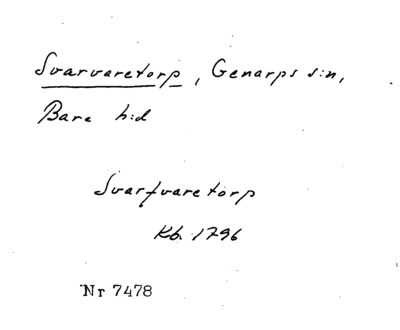 Svarvaretorp, Genarps s:n,
Bara h:d
Svarfvaretorp
Kb. 1796
Nr 7478